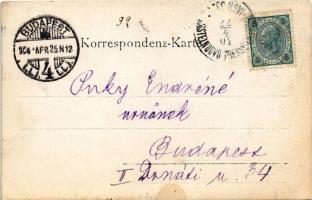 BUDAPEST
904 APR. 25. N 12
4
92
Korrespondenz-Karte
5
Puky Endréné
urnőnek
Budapest
II Donáti u. 34